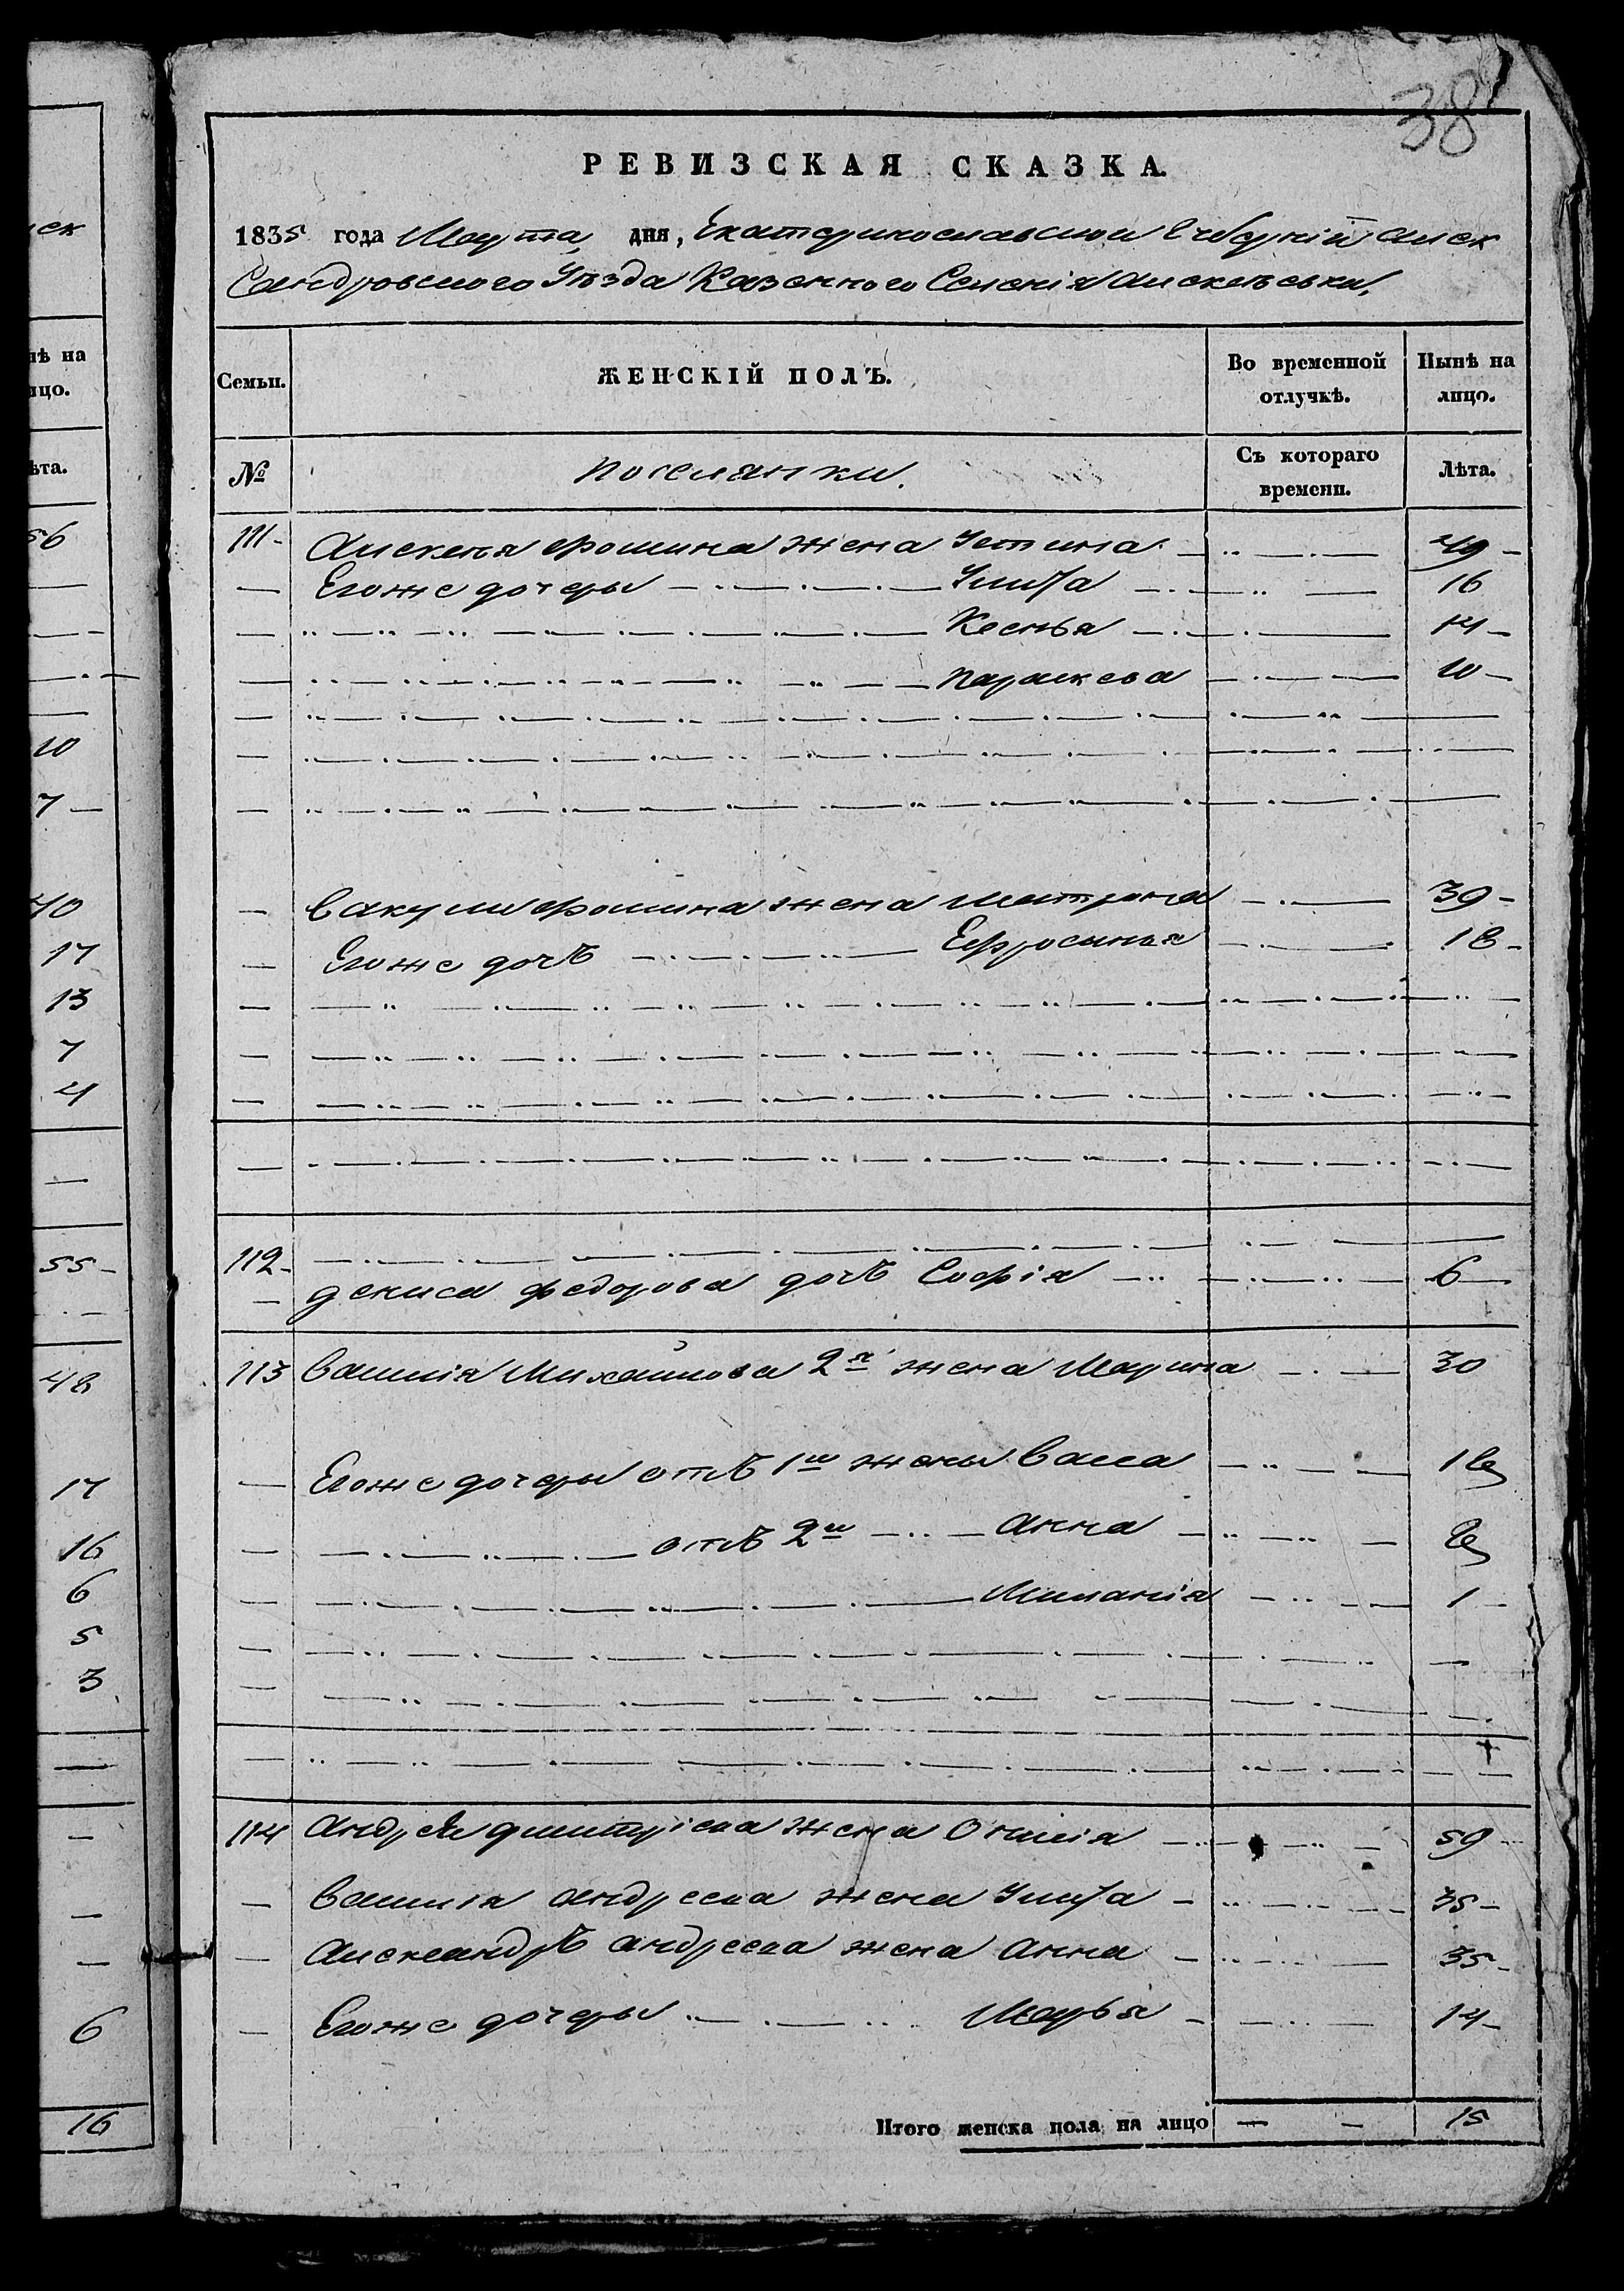 ск
нѣ на
ицо.
ѣта.
56
10
7 —
40
17
13
7
4
55 —
48
17
16
6
5
3
6
16
38
РЕВИЗСКАЯ СКАЗКА
1835 года Марта дня, Екатеринославской Губерніи алек
сандровского Уѣзда Казенного Селенія алексѣевки.
Семьи. ЖЕНСКІЙ ПОЛЪ. Во временной отлучкѣ. Нынѣ на лицо.
№ поселянки. Съ котораго времени. Лѣта.
111 Алексея фомина жена Устина 49
Егоже дочеры Улита 16
Ксенья 14
параскева 10
Вакулы фомина жена матрона 39
Егоже дочь Ефросинья 18
112
дениса федорова дочь Софія 6
113 Василія Михайлова 2я жена Марина 30
Егоже дочеры отъ 1й жены Васса 18
отъ 2й анна 8
Миланія 1
114 андрея дмитріева жена 59
Василія андреева жена Улита 35
Александръ андреева жена анна 35
Егоже дочеры Марья 14
Итого женска пола на лицо — — 15